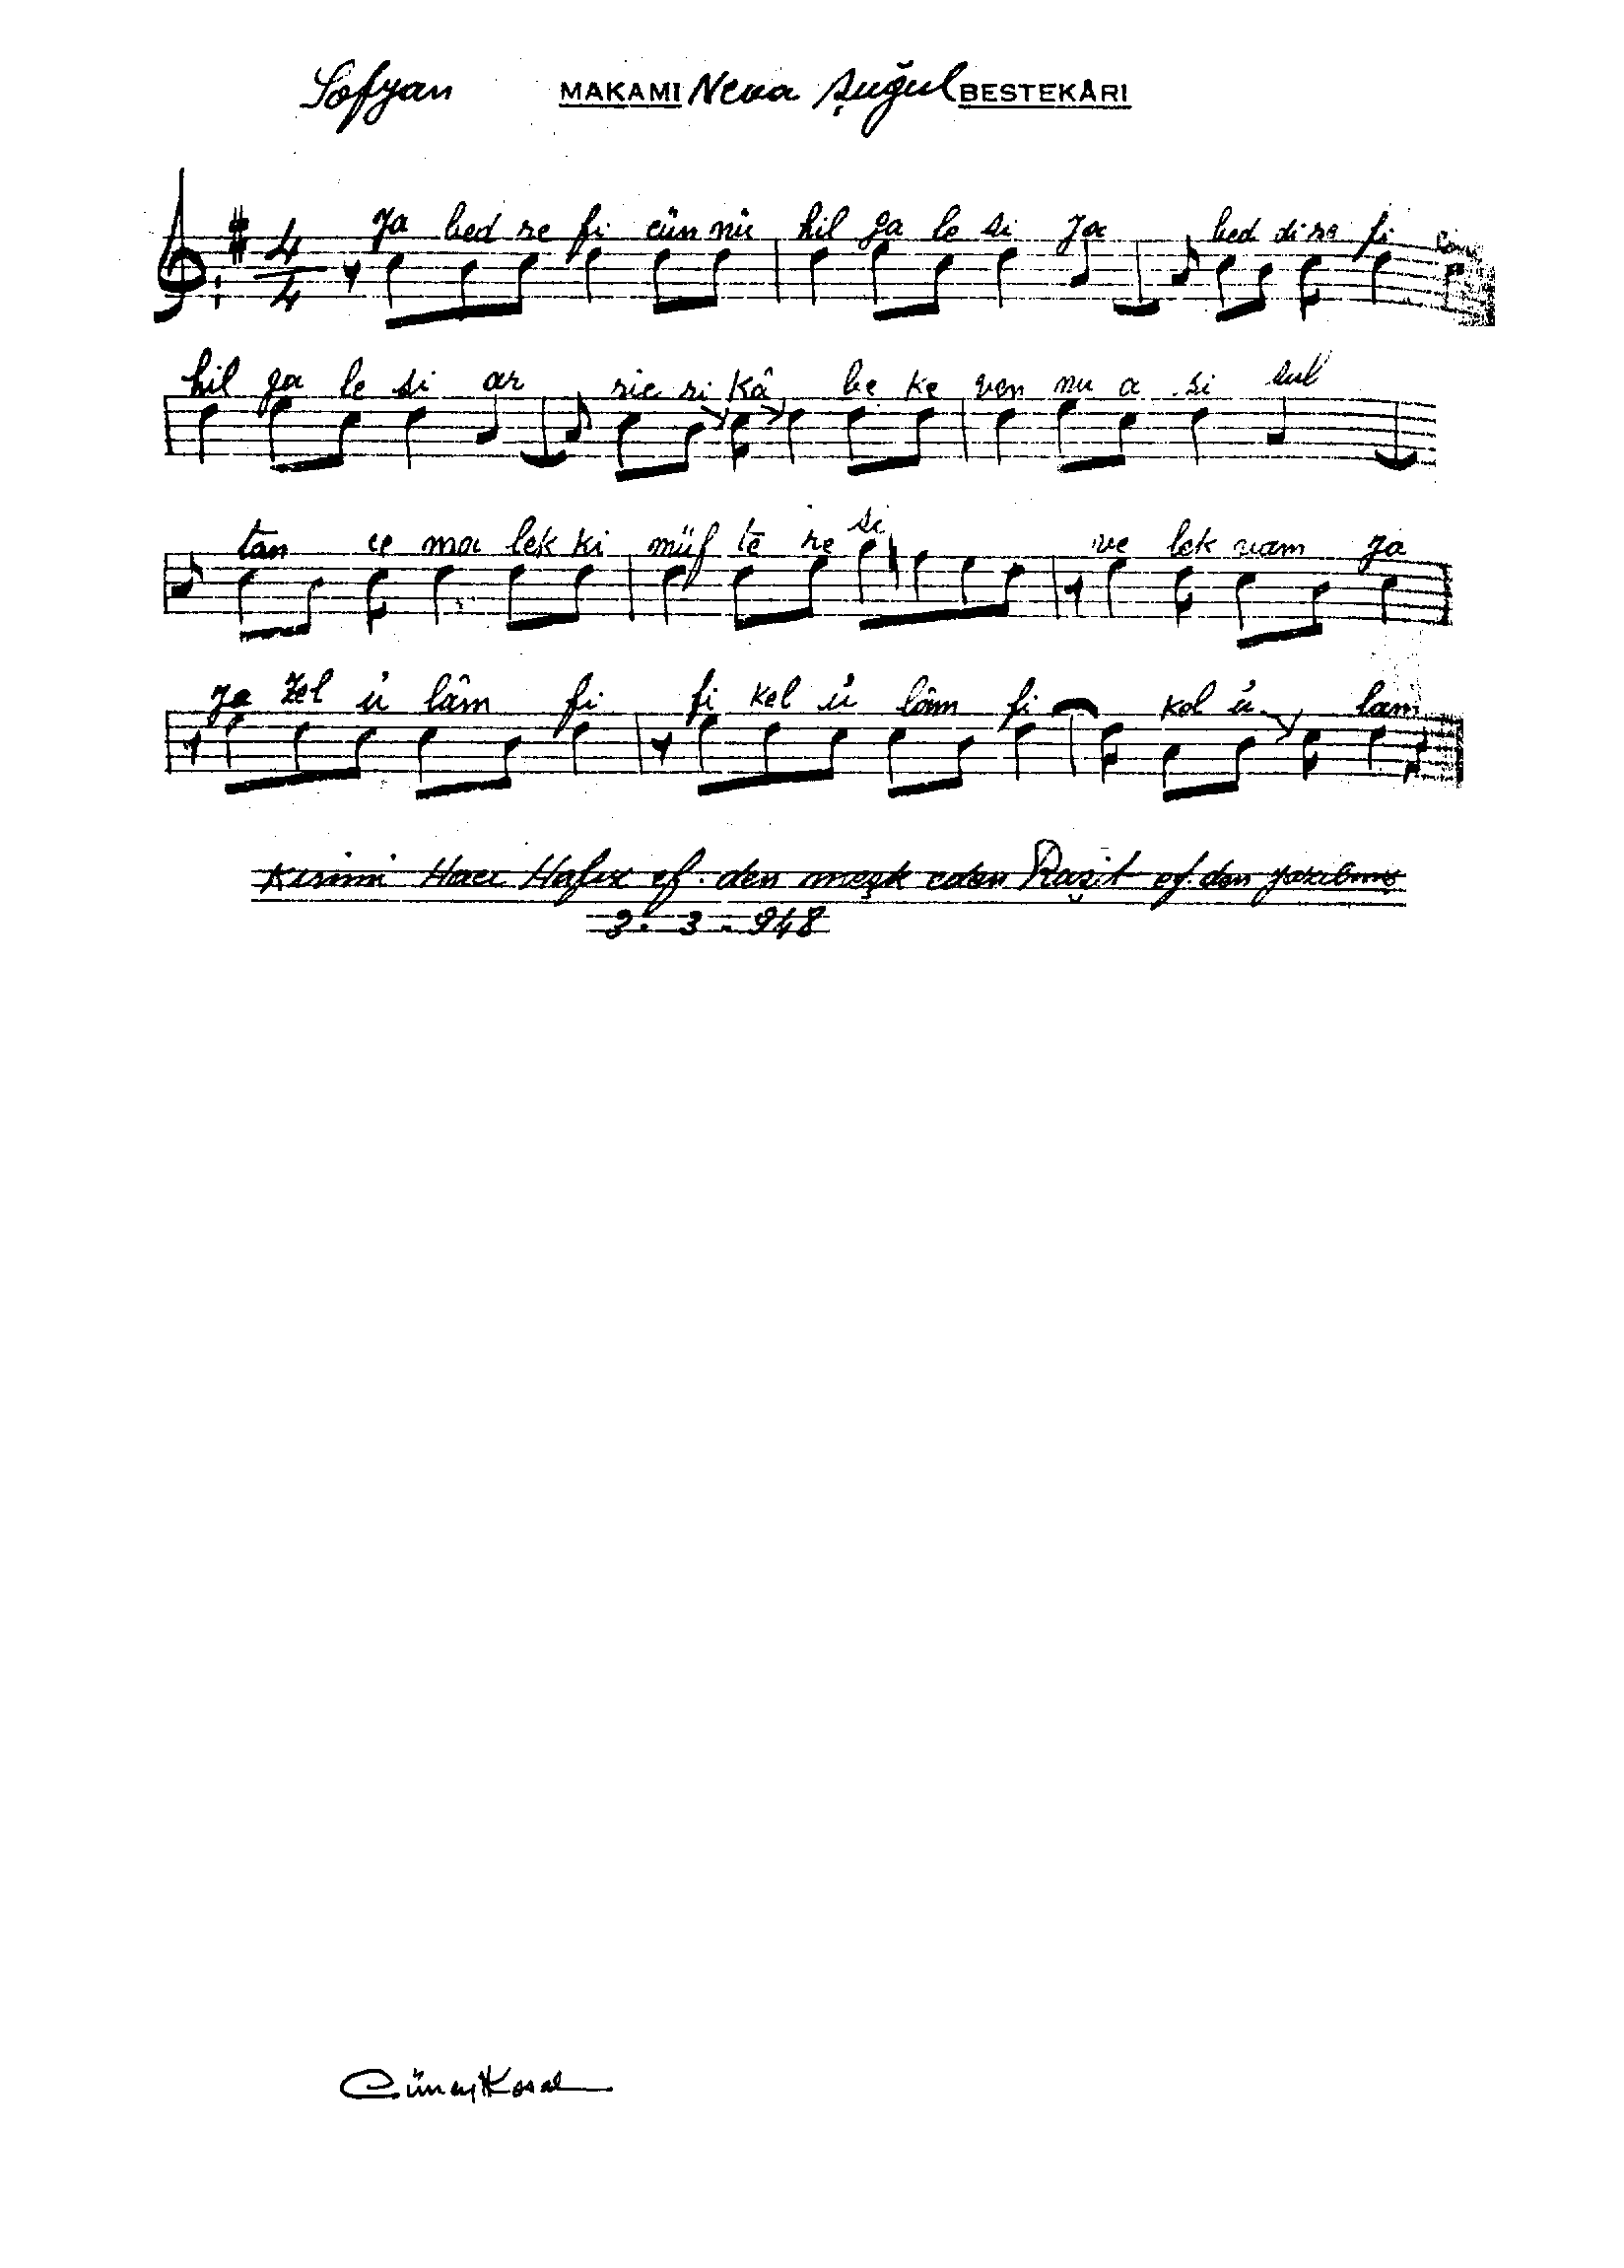 Sofyan MAKAMI Neva Şuğul BESTEKÂRI
4/4
Ya bed re fi cün nü hil ga le si ya bed di re fi
hil ga le si ar rie ri kâ be ke ven nu a si sul
tan ce ma lek ki müf te re si ve lek vam ya
ya zel ü lâm fi fi kel ü lâm fi kel ü lam
Kırımi Hacı Hafız ef. den meşk eden Raşit ef. den yazılmış
3. 3. 948
Cüneyt Kosal